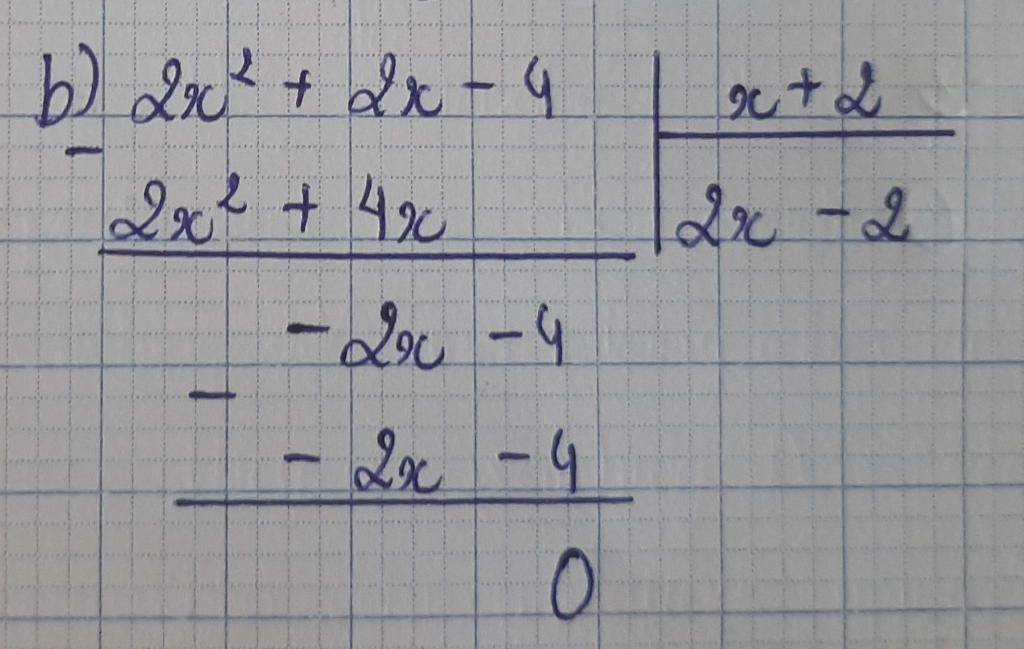 b) 2x² + 2x - 4 | x + 2
-
2x² + 4x | 2x - 2
- 2x - 4
-
- 2x - 4
0